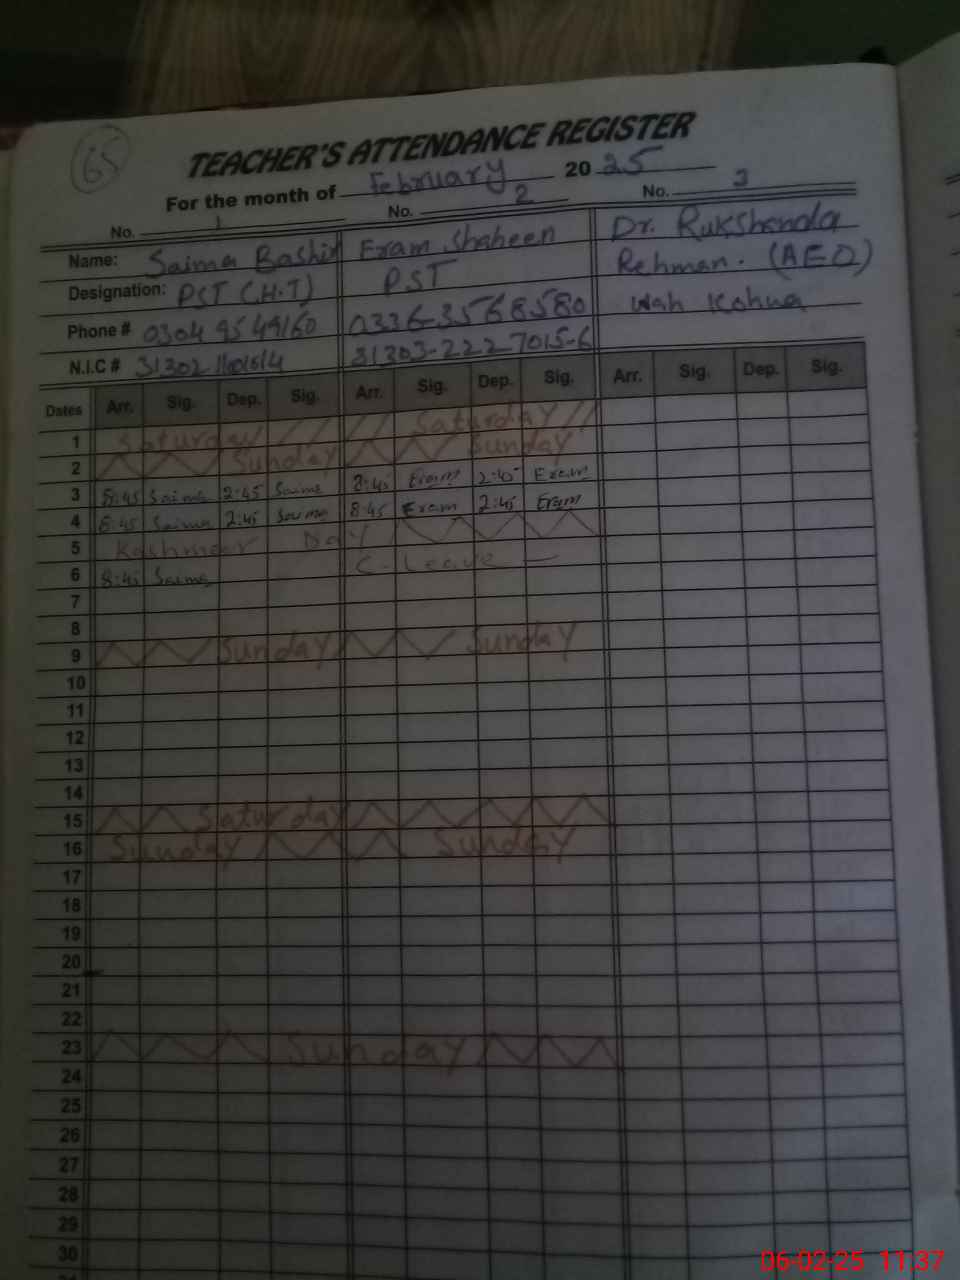 65
TEACHER'S ATTENDANCE REGISTER
For the month of February 2025
No. 1 No. 2 No. 3
Name: Saima Bashir Eram Shaheen Dr. Rukshanda
Designation: PST (H.T) PST Rehman. (AEO)
Phone # 0304 9549160 0336-3568580 Wah Kohna
N.I.C # 31303-2227015-6
Dates Arr. Sig. Dep. Sig. Arr. Sig. Dep. Sig. Arr. Sig. Dep. Sig.
1 Saturday Saturday
2 Sunday Sunday
3 8:45 Saima 2:45 Saima 8:45 Eram 2:45 Eram
4 8:45 Saima 2:45 Saima 8:45 Eram 2:45 Eram
5 Kashmeer Day
6 8:45 Saima C-Leave
7
8
9 Sunday Sunday
10
11
12
13
14
15 Saturday
16 Sunday Sunday
17
18
19
20
21
22
23 Sunday
24
25
26
27
28
29
30
06-02-25 11:37